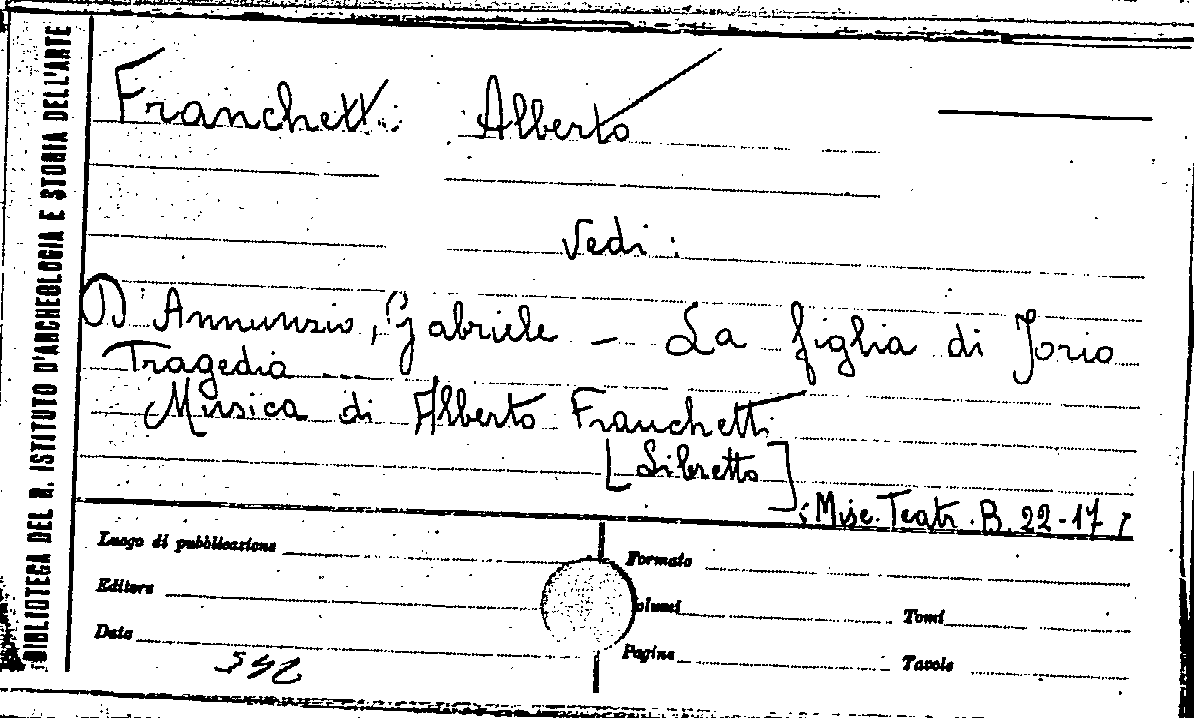 BIBLIOTECA DEL R. ISTITUTO D'ARCHEOLOGIA E STORIA DELL'ARTE
Franchetti Alberto
Vedi:
D'Annunzio, Gabriele - La figlia di Jorio
Tragedia
Musica di Alberto Franchetti
[Libretto]
Misc. Teatr. B. 22-17
Luogo di pubblicazione
Formato
Editore
olumi
Tomi
Data
Pagine
Tavole